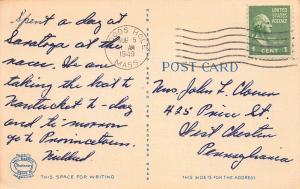 Spent a day at
Saratoga at the
races. We are
taking the boat to
Nantucket to-day
and to-morrow
go to Provincetown.
Mildred
THIS SPACE FOR WRITING
WOODS HOLE
AUG 5
AM
1949
MASS.
UNITED STATES POSTAGE
1 CENT 1
POST CARD
Mrs. John L.
435 Price St.
West Chester
Pennsylvania
THIS SIDE IS FOR THE ADDRESS